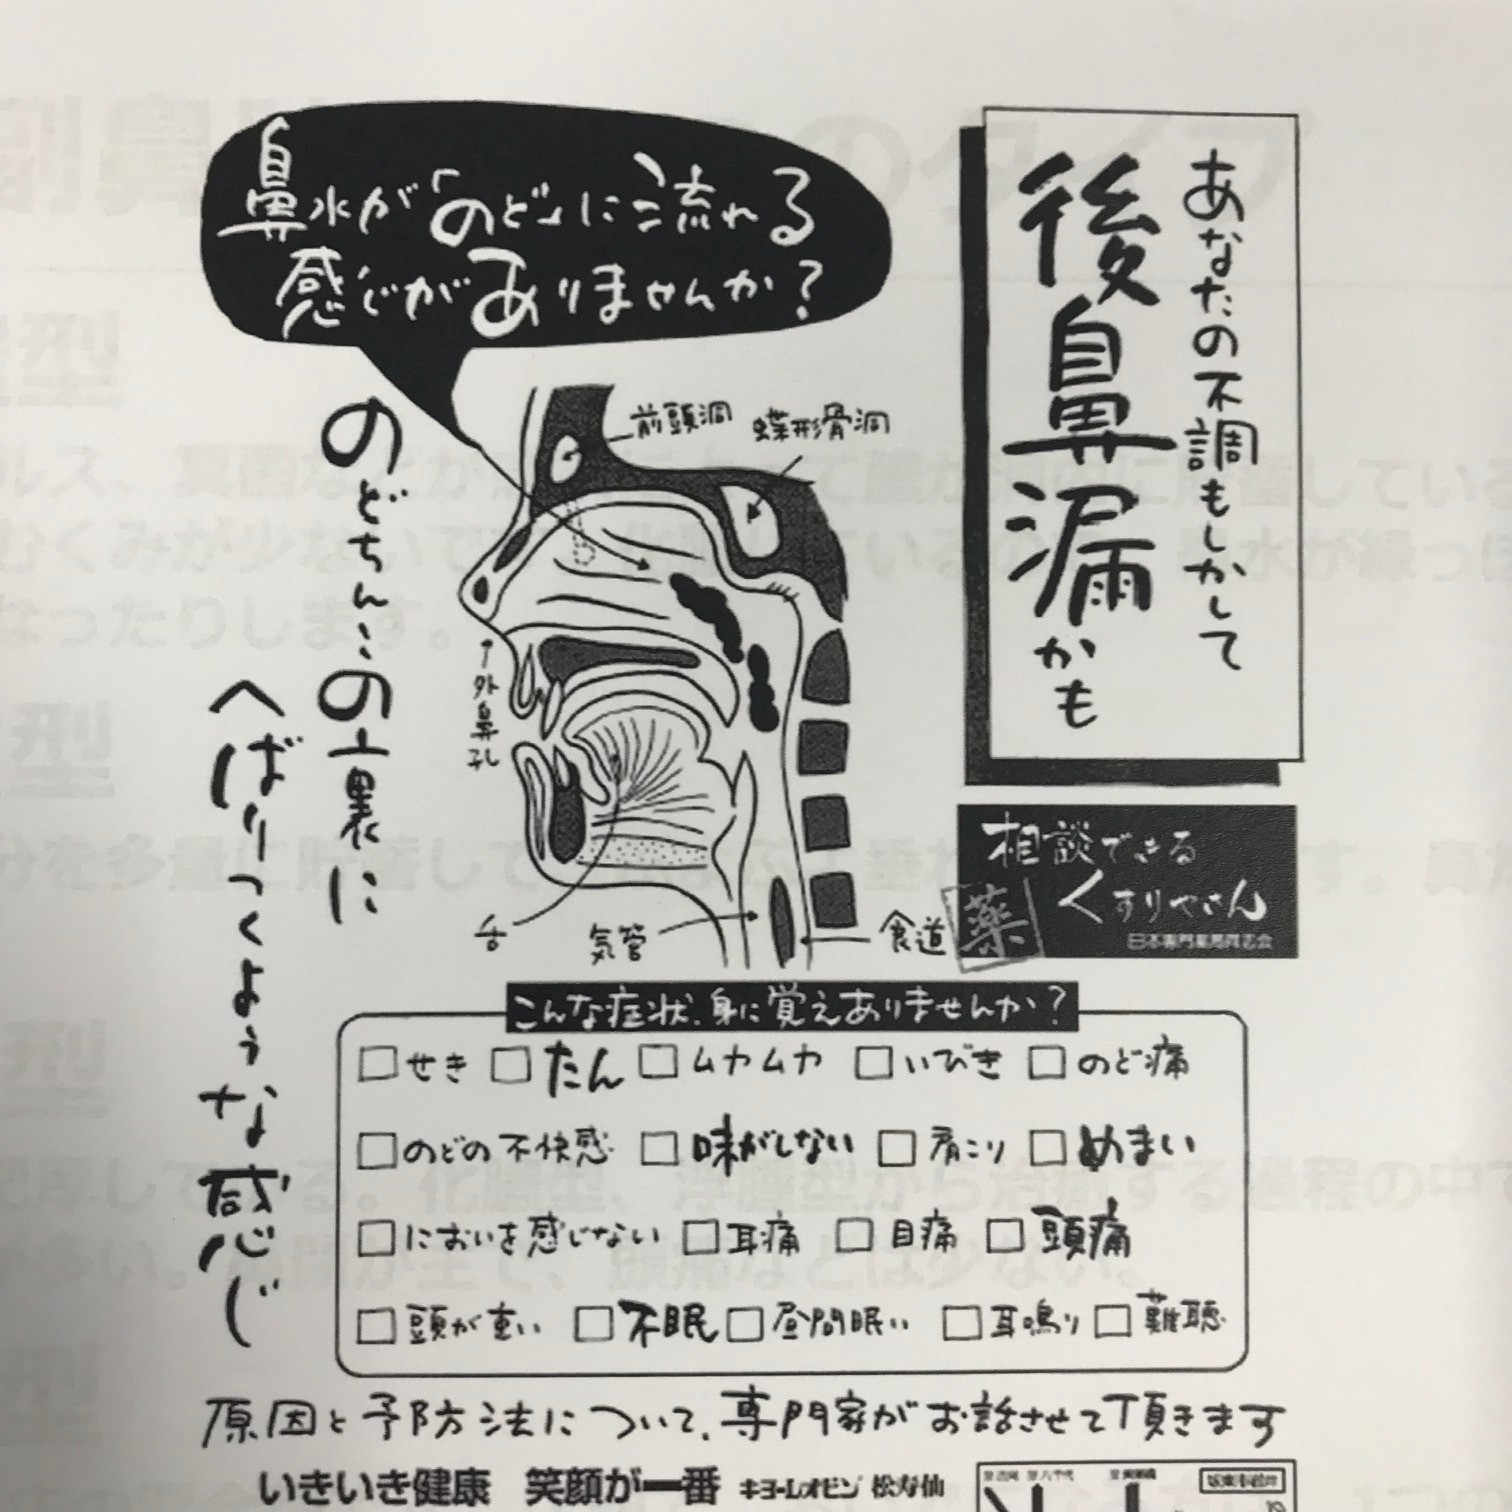 あなたの不調もしかして
後鼻漏かも
鼻水が「のど」に流れる
感じがありませんか?
前頭洞
蝶形骨洞
外鼻孔
舌
気管
食道
のどちん…の裏に
へばりつくような感じ
相談できる
くすりやさん
薬
こんな症状、身に覚えありませんか?
せき たん ムカムカ いびき のど痛
のどの不快感 味がしない 肩こり めまい
においを感じない 耳痛 目痛 頭痛
頭が重い 不眠 昼間眠い 耳鳴り 難聴
原因と予防法について、専門家がお話させて頂きます
いきいき健康 笑顔が一番 キヨーレオピン 松寿仙